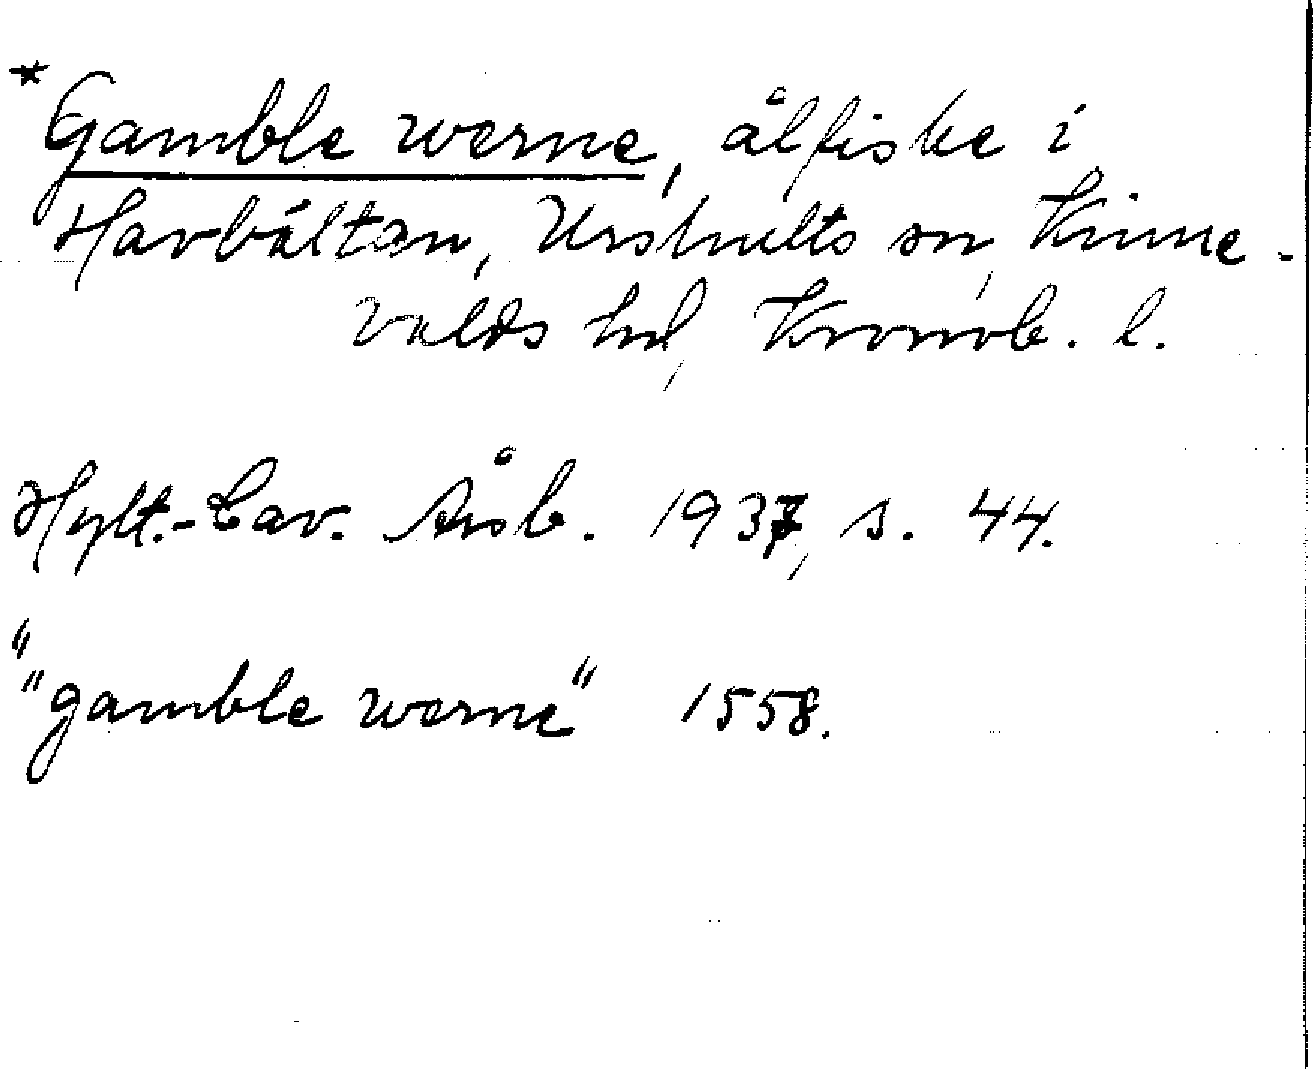 *Gamble werne, ålfiske i
Havbältan, Urshults sn, Kinne-
valds hd, Kronob. l.
Hylt.-Cav. Årsb. 1937, s. 44.
""gamble werne" 1558.